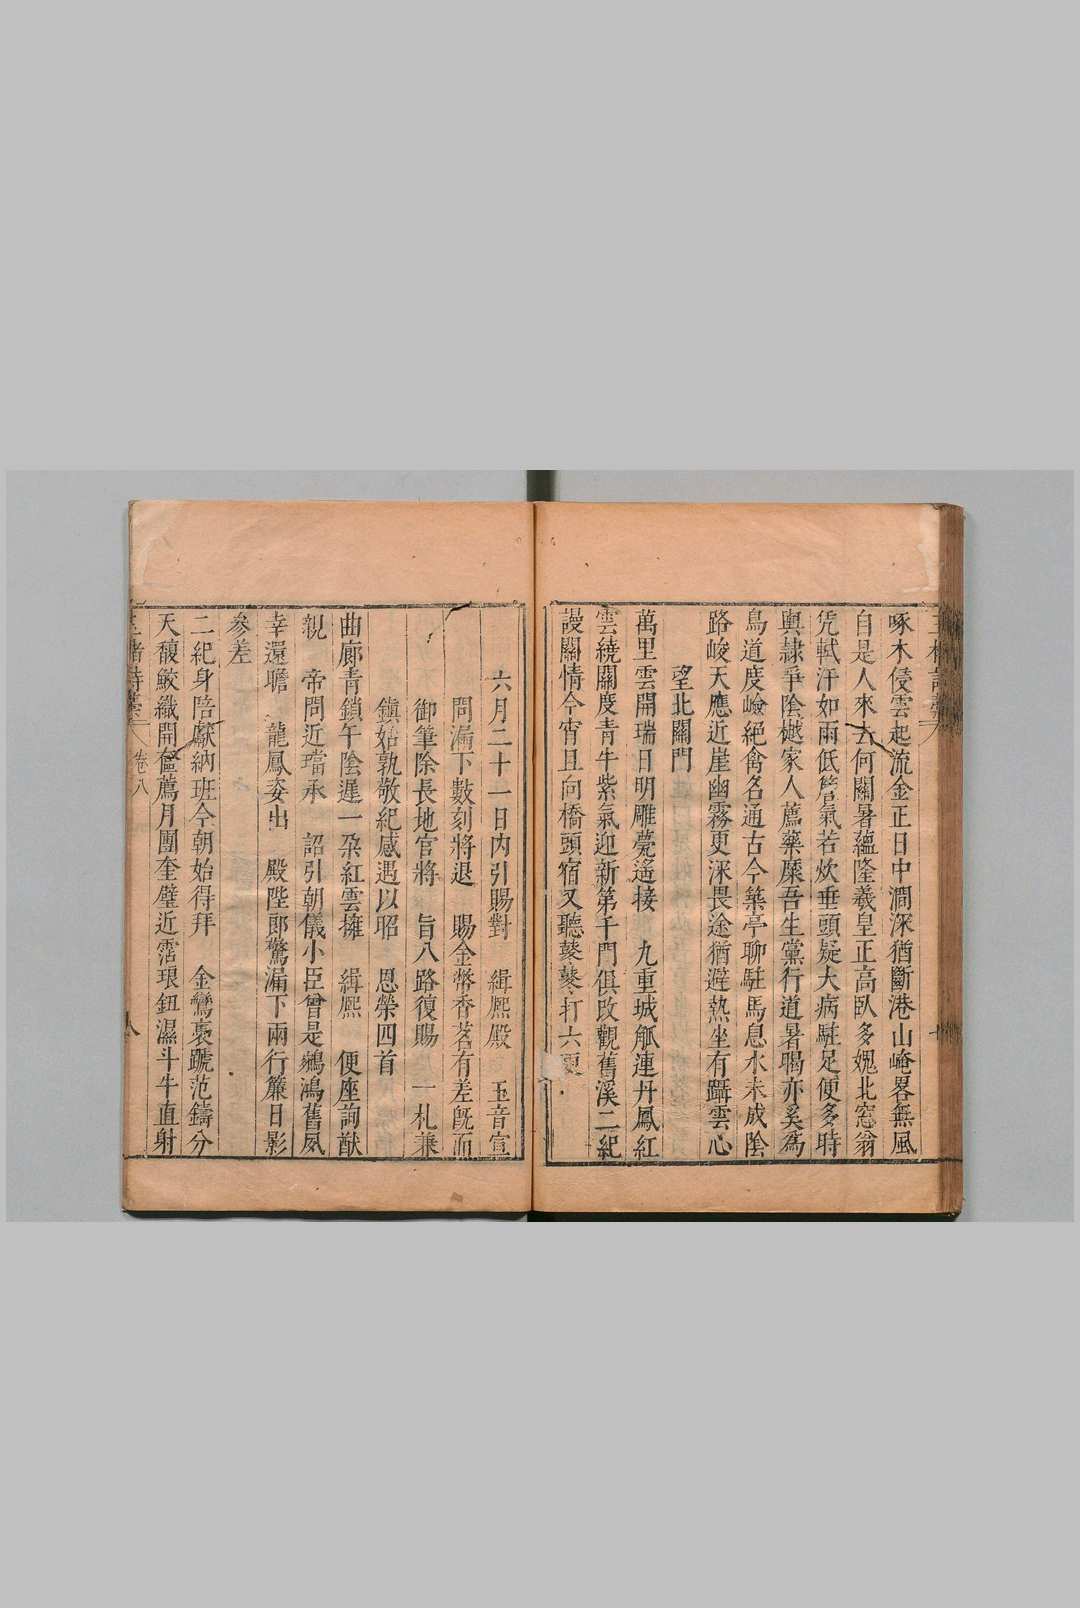 啄木侵雲起流金正日中澗深猶斷港山崦畧無風
自是人來去何關暑蘊隆羲皇正高臥多媿北窓翁
凭軾汗如雨低簷氣若炊垂頭疑大病駐足便多時
輿隷爭陰樾家人薦藥糜吾生黨行道暑暍亦奚爲
鳥道度嶮絕禽名通古今築亭聊駐馬息水未成陰
路峻天應近崖幽霧更深畏途猶避熱坐有躡雲心
望北關門
萬里雲開瑞日明雕甍遙接 九重城觚連丹鳳紅
雲繞關度青牛紫氣迎新第千門俱改觀舊溪二紀
謾關情今宵且向橋頭宿又聽鼕鼕打六更
六月二十一日內引賜對 緝熙殿 玉音宣
問漏下數刻將退 賜金幣香茗有差旣而
御筆除長地官將 旨八路復賜 一札兼
鎭姑孰敬紀感遇以昭 恩榮四首
曲廊青鎖午陰遲一朶紅雲擁 緝熙 便座詢猷
親 帝問近璫承 詔引朝儀小臣曾是鵷鴻舊夙
幸還瞻 龍鳳姿出 殿陛郎驚漏下兩行簾日影
參差
二紀身陪獻納班今朝始得拜 金鸞褭蹏范鑄分
天馥鮫織開奩薦月團奎璧近霑琅鈕濕斗牛直射
卷八
八